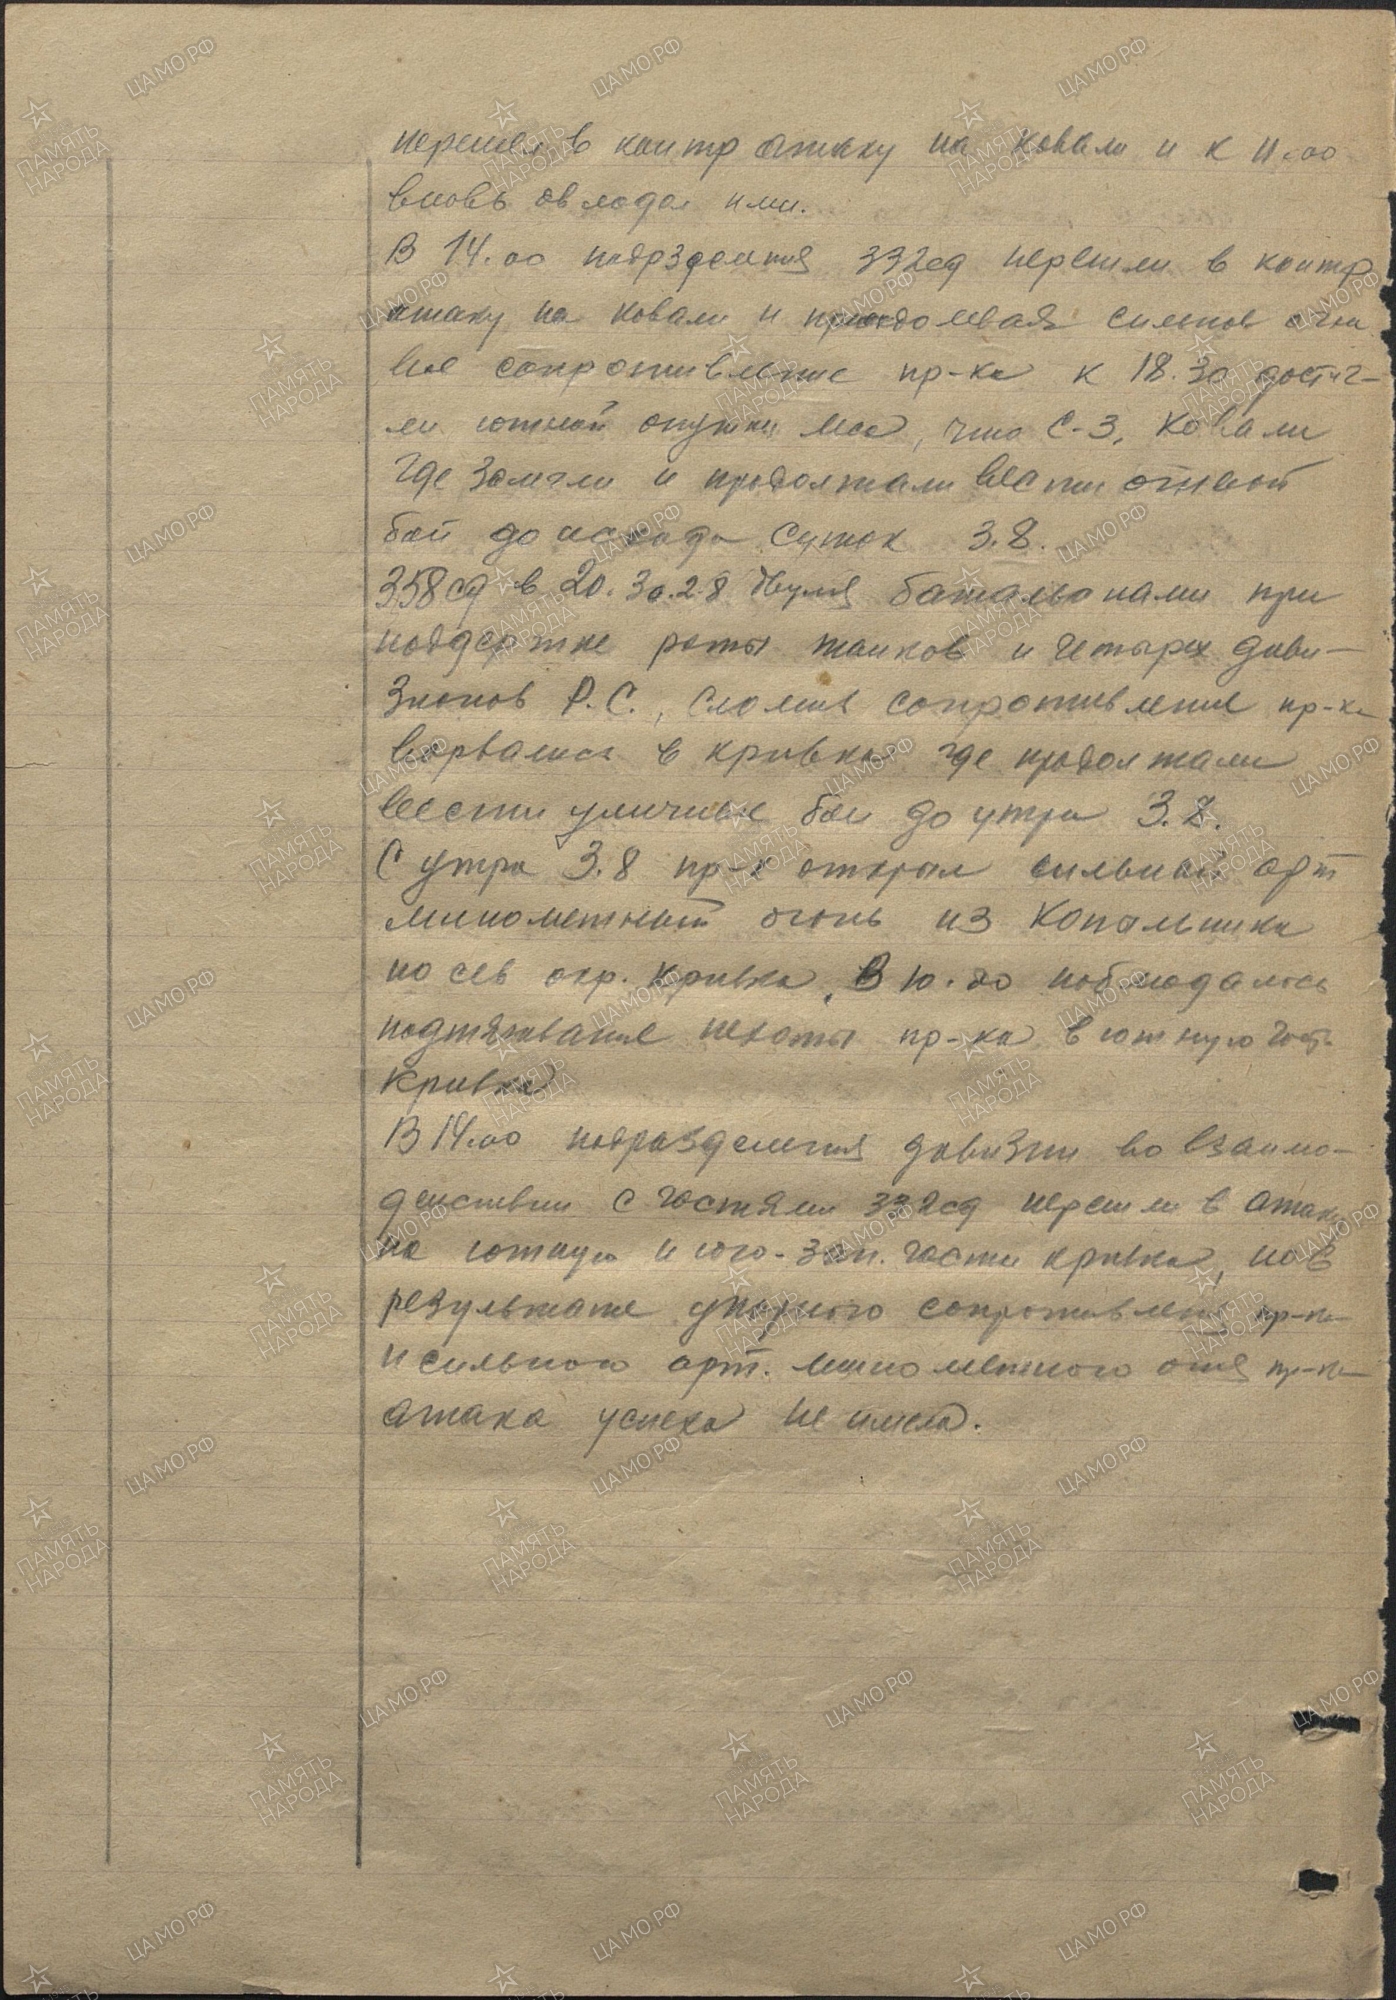 перешел в контр атаку на Ковали и к 11.00
вновь овладел ими.
В 14.00 подразделения 332сд перешли в контр
атаку на Ковали и преодолевая сильное огне
вое сопротивление пр-ка к 18.30 достиг-
ли южной опушки леса, что С-З. Ковали
где залегли и продолжали вести огневой
бой до исхода суток 3.8.
358сд в 20.30.2.8 двумя батальонами при
поддержке роты танков и четырех диви-
зионов Р.С., сломив сопротивление пр-ка
ворвались в Кривки где продолжали
вести уличные бои до утра 3.8.
С утра 3.8 пр-к открыл сильный арт
минометный огонь из Копальники
по сев окр. Кривка. В 10.00 наблюдалось
подтягивание пехоты пр-ка в южную част.
Кривка
В 14.00 подразделения дивизии во взаимо-
действии с частями 332сд перешли в атаку
на южную и юго-зап. части Кривка, но в
результате упорного сопротивлен. пр-ка
и сильного арт. минометного огня пр-ка
атака успеха не имела.